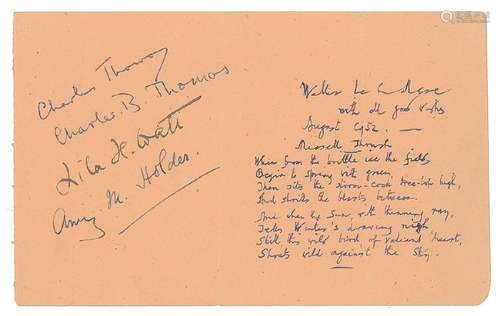 Charles Thomas
Charles B Thomas
Lila H. Watt
Amy M. Holder.
Walter de la Mare
with all good wishes
August 1952. —
Thrush
When from the brittle ice the fields
Begin to spring with green,
Then sits the storm-cock tree-top high,
And shrills the blasts between.
And when the Sun, with thinning ray,
Tells Winter's drawing nigh
Still this wild bird of valiant heart,
Shouts wild against the sky.